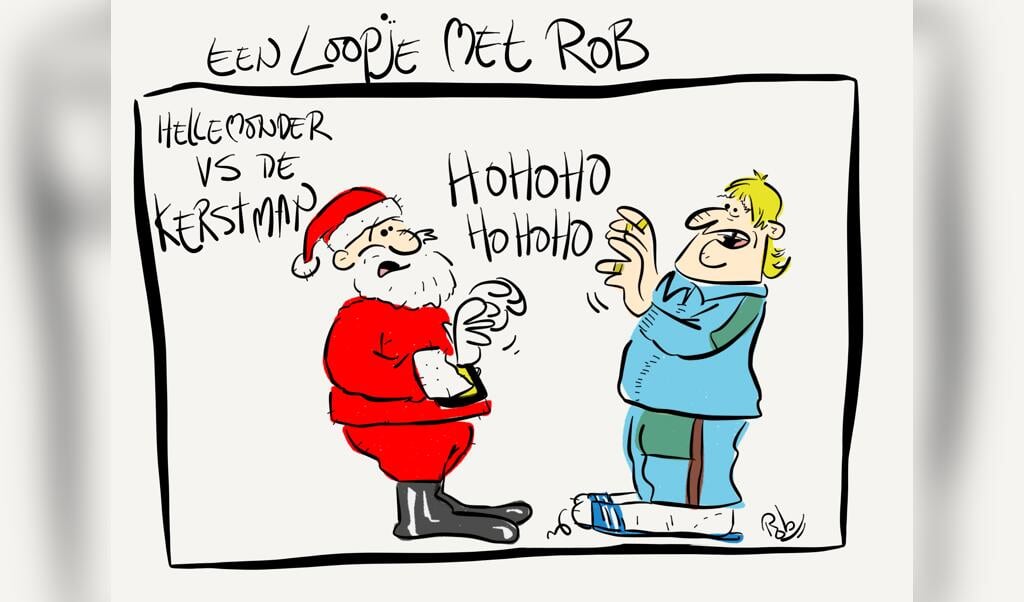 EEN LOOPJE MET ROB
HELLEMONDER
VS DE
KERSTMAN
HOHOHO
HOHOHO
Rob